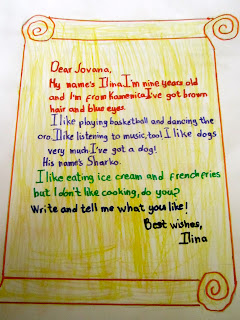 Dear Jovana,
My name's Ilina.I'm nine years old
and I'm from Kamenica.I've got brown
hair and blue eyes.
I like playing basketball and dancing the
oro.I like listening to music,too.I like dogs
very much.I've got a dog!
His name's Sharko.
I like eating ice cream and french fries
but I don't like cooking, do you?
Write and tell me what you like!
Best wishes,
Ilina